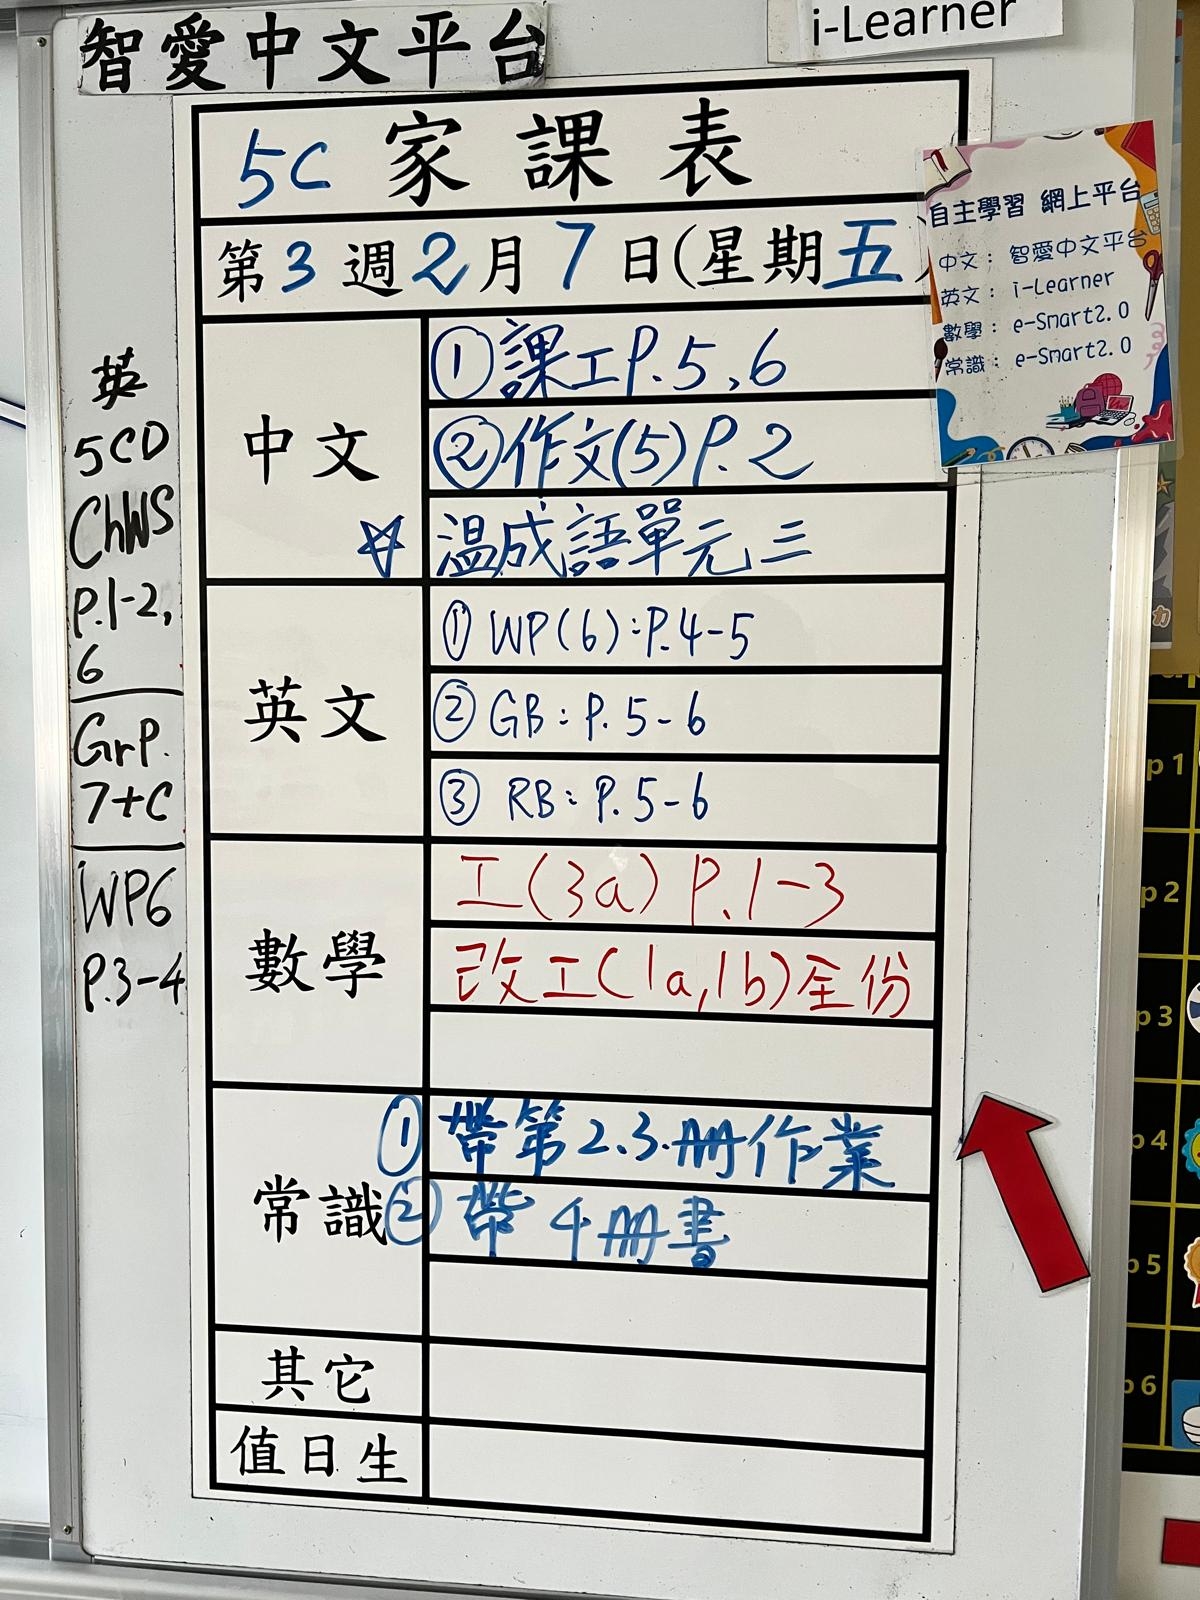 智愛中文平台
i-Learner
5C 家課表
第3週2月7日(星期五)
中文
①課工P.5,6
②作文(5)P.2
☆ 温成語單元三
英文
① WP(6):P.4-5
② GB: P. 5-6
③ RB: P. 5-6
數學
工(3a) P.1-3
改工(1a,1b)全份
常識
① 帶第2.3.冊作業
② 帶4冊書
其它
值日生
自主學習 網上平台
中文： 智愛中文平台
英文： i-Learner
數學： e-Smart2.0
常識： e-Smart2.0
英
5CD
ChWS
P.1-2,
6
GrP.
7+C
WP6
P.3-4
p1
p2
p3
p4
p5
p6